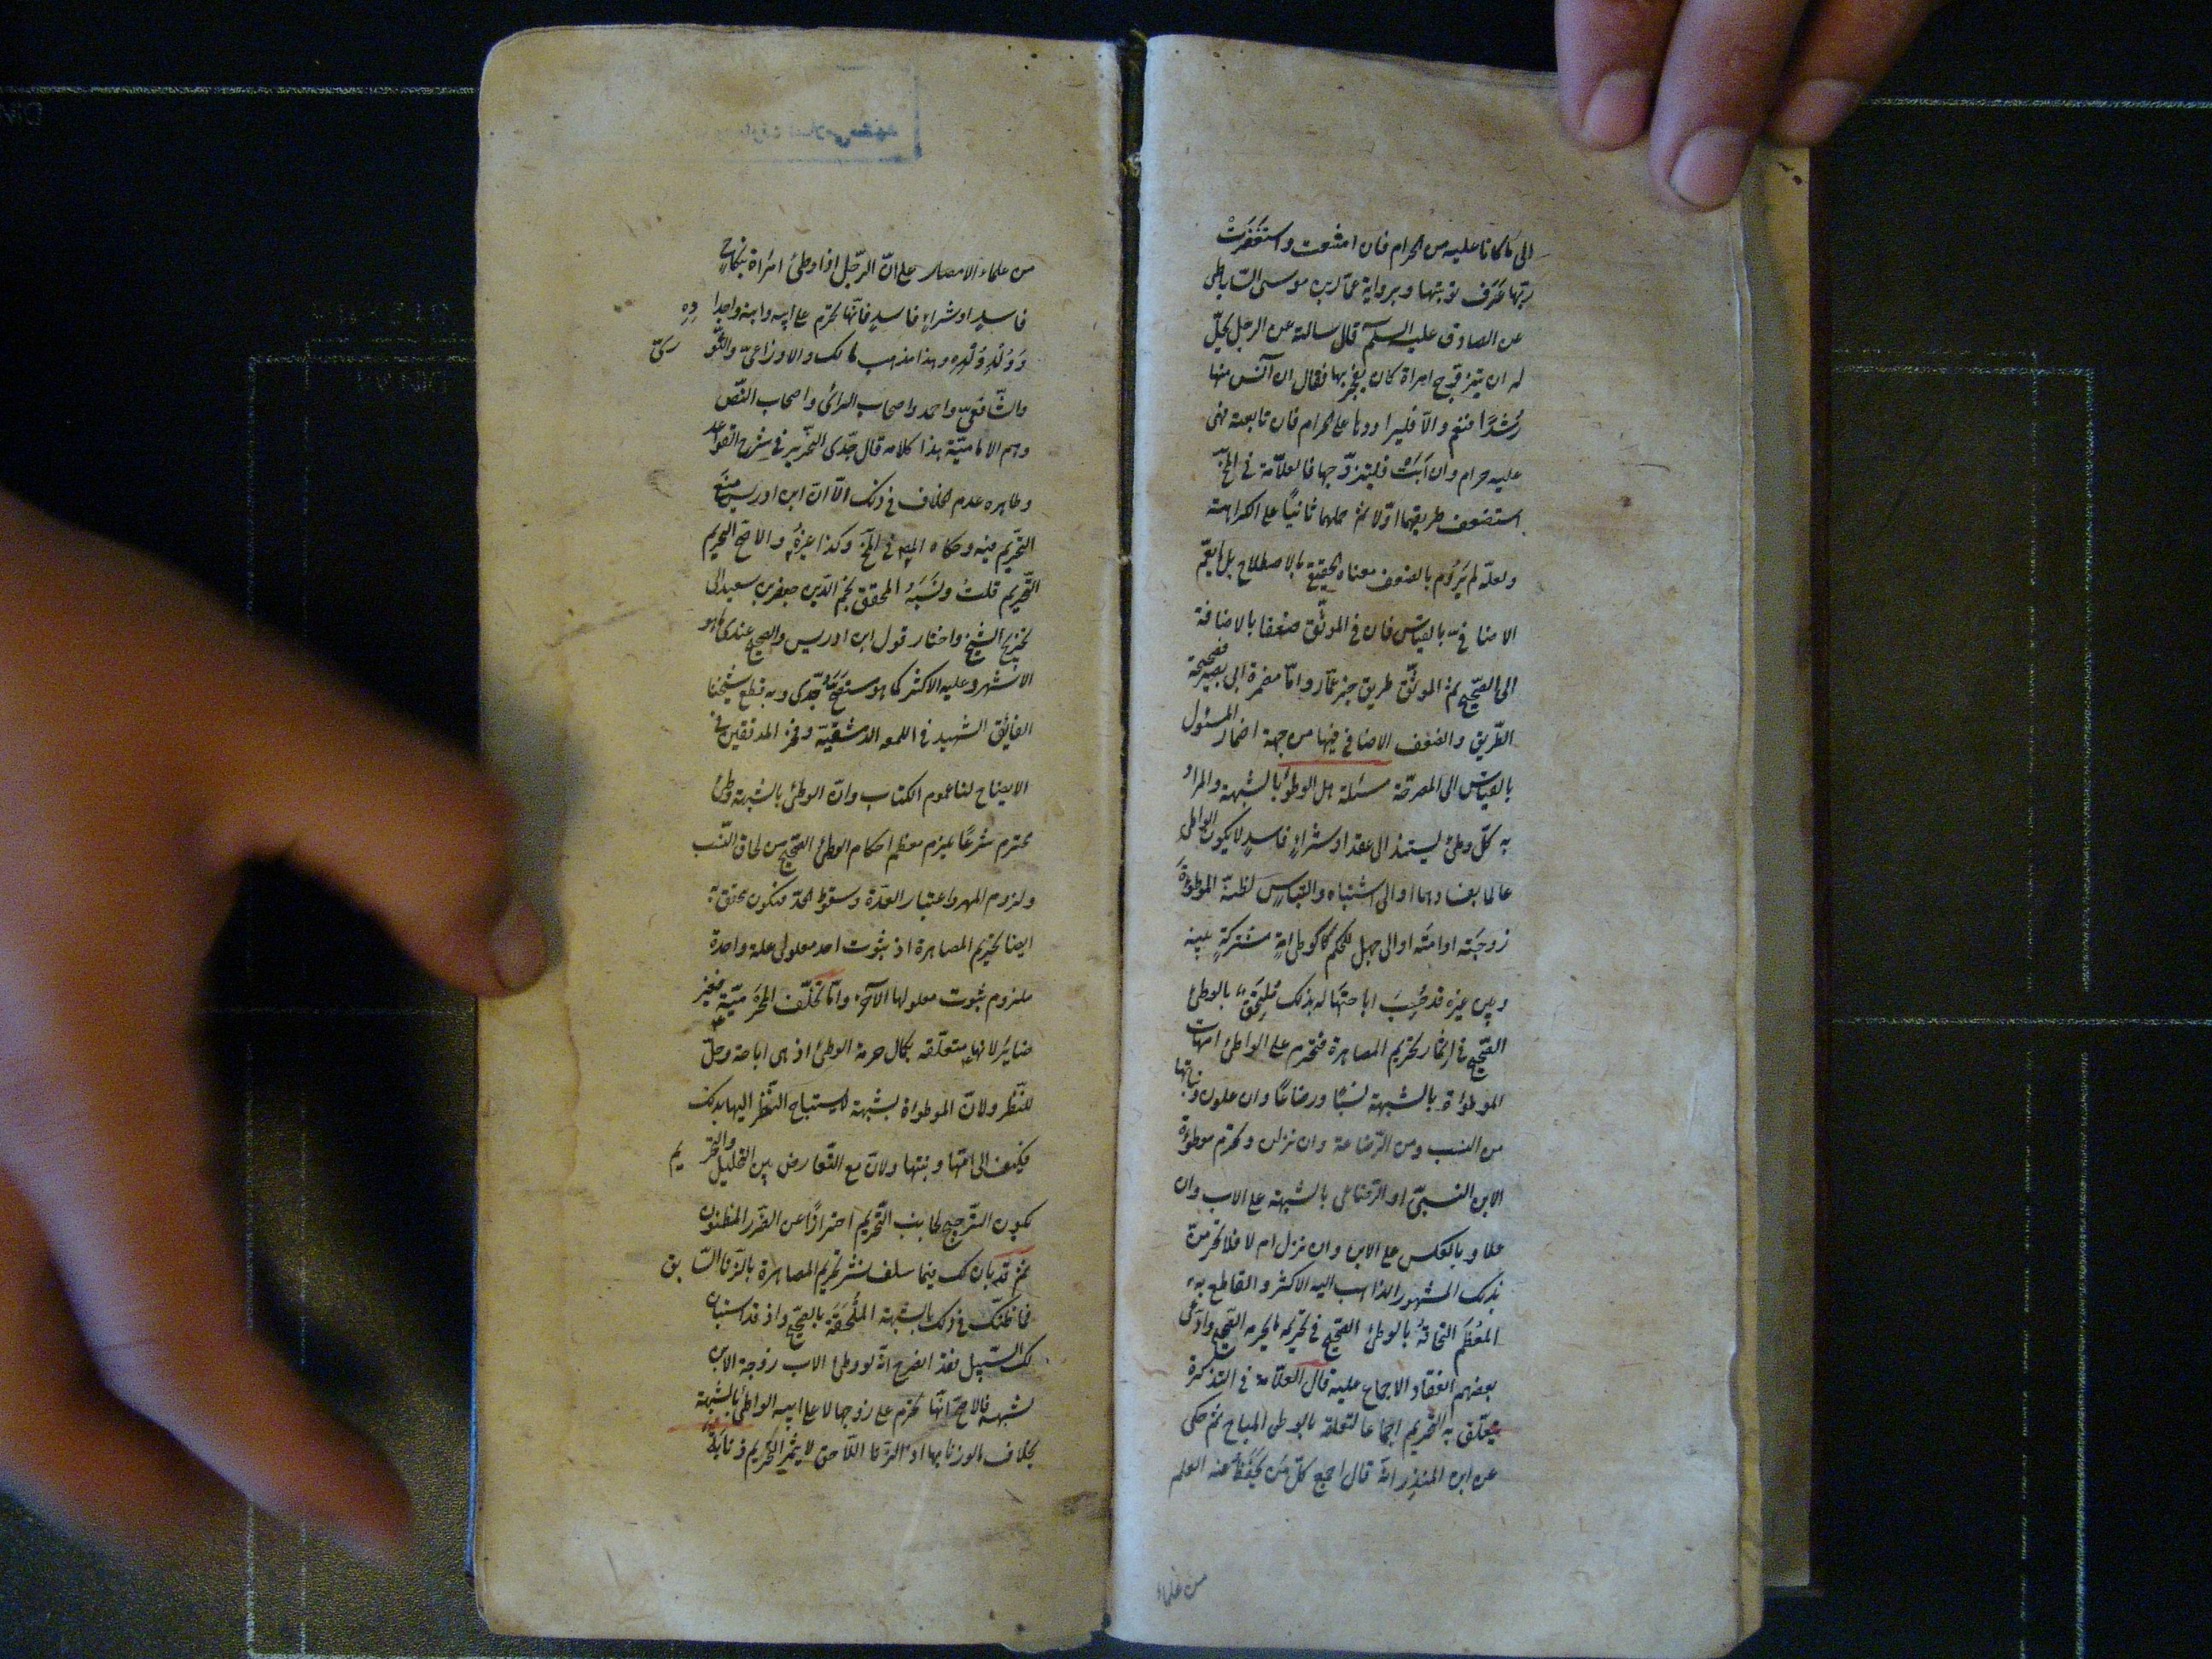 الى ما كانا عليه من الحرام فان امتنعت واستغفرت
ربّها عرف توبتها وبرواية عمّار بن موسى السّاباطي
عن الصادق عليه السلم قال سالته عن الرجل يحلّ
له ان يتزوّج امراة كان يفجر بها فقال ان آنس منها
رُشدًا فنعم والّا فليراودها على الحرام فان تابعته فهي
عليه حرام وان اَبَتْ فليتزوّجها فالعلّامة في المخ
استضعف طريقهما اوّلا ثمّ حملهما ثانيًا على الكراهة
ولعلّه لم يَرُم بالضعف معناه الحقيقيّ بالاصطلاح بل ما يعمّ
الاضافيّ بالقياس فان في الموثّق ضعفا بالاضافة
الى الصّحيح ثمّ الموثّق طريق خبر عمّار وامّا مضمرة ابي بصير فصحيحة
الطّريق والضعف الاضافي فيها من جهة اضمار المسئول
بالقياس الى المصرحّة مسئلة هل الوطؤ بالشبهة والمراد
به كلّ وطئ يستند الى عقد او شراءٍ فاسدٍ لا يكون الواطي
عالما بفسادهما او الى اشتباه والتباسٍ لظنّه الموطوءَة
زوجَته او امَتَه او الى جهل للحكم كوطي امةٍ مشتركةٍ بينه
وبين غيره قد حَسِبَ اباحتَها له بذلك مُلحَق بالوطئ
الصّحيح في اثمار تحريم المصاهرة فتحرم على الواطئ امهات
الموطواة بالشبهة نسبًا ورضاعًا وان علون وبناتها
من النسب ومن الرّضاعة وان نزلن وتحرم موطوءة
الابن النسبيّ او الرّضاعي بالشبهة على الاب وان
علا وبالعكس على الابن وان نزل ام لا فلا تحرمن
بذلك المشهور الذاهب اليه الاكثر والقاطع به
المُعظم التحاقهُ بالوطئ الصّحيح في تحريمه ما يحرمه الصّحيح وادّعى
بعضهم انعقاد الاجماع عليه قال العلّامة في التذكرة
يتعلّق به التحريم اجماعا لتعلقه بالوطي المباح ثمّ حكى
عن ابن المنذِر انّه قال اجمع كلّ مَن يُحفَظُ عنه العلم
من علماء
من علماء الامصار على انّ الرّجل اذا وطئ امراة بنكاحٍ
فاسدٍ او شراءٍ فاسدٍ فانّها تحرم على ابيه وابنه واجداده
وَوُلْدِ وَلَدِه وهذا مذهب مالك والاوزاعيّ والثّوري
والشّافعيّ واحمد واصحاب الرائ واصحاب النّص
وهم الاماميّة هذا كلامه قال جّدى النّحرير في شرح القواعد
وظاهره عدم الخلاف في ذلك الّا انّ ابن ادريس منع
التّحريم فيه وحكاه المص في المخ وكذا غيرهُ والاصح التحريم
التّحريم قلتُ ونَسَبَهُ المحقق نجم الدّين جعفر بن سعيد الى
تخريج الشيخ واختار قول ابن ادريس والصحيح عندي ما هو
الاشهر وعليه الاكثر كما هو جّدى وبه قطع شيخنا
الفائق الشهيد في اللمعة الدمشقيّة وفخر المدققين في
الايضاح لنا عموم الكتاب وانّ الوطئ بالشبهة وطئ
محترم شرعًا يلزم معظم احكام الوطئ الصّحيح من لحاق النّسب
ولزوم المهر واعتبار العدّة وسقوط الحدّ فتكون يلحق به
ايضا تحريم المصاهرة اذ ثبوت احد معلولى علة واحدة
ملزوم ثبوت معلولها الآخر وامّا تخلّف المحرَميّة فغير
ضاير لانها متعلّقه بكمال حرمة الوطئ اذ هى اباحة وحلّ
للنّظر ولانّ الموطواة بشبهة لا يستباح النّظر اليها بذلك
فكيف الى امّها وبنتها ولانّ مع التّعارض بين التحليل والتحريم
يكون التّرجيح لجانب التّحريم احترازًا عن الضّرر المظنون
ثمّ قد بان لك فيما سلف نشر تحريم المصاهرة بالزّنا السّابق
فما ظنّك في ذلك بالشبهة المُلحَقة بالصّحيح واذ قد استبان
لك السّبيل فقد اتضح انّه لو وطئ الاب زوجة الابن
لشبهة فالاصحّ انّها تحرم على زوجها لا على ابيه الواطئ بالشبهة
بخلاف ما لو زنا بها اذ الزّنا اللّاحق لا يثمر التحريم